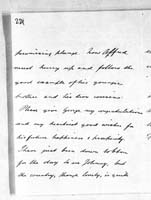 221
promising plunge. Now Clifford
must hurry up and follow the
good example of his younger
brother and his dear cousins.
Please give George my congratulations
and my heartiest good wishes for
his future happiness & prosperity.
I have just been down to
for the day to see Johnny, but
the country, though lovely, is quite